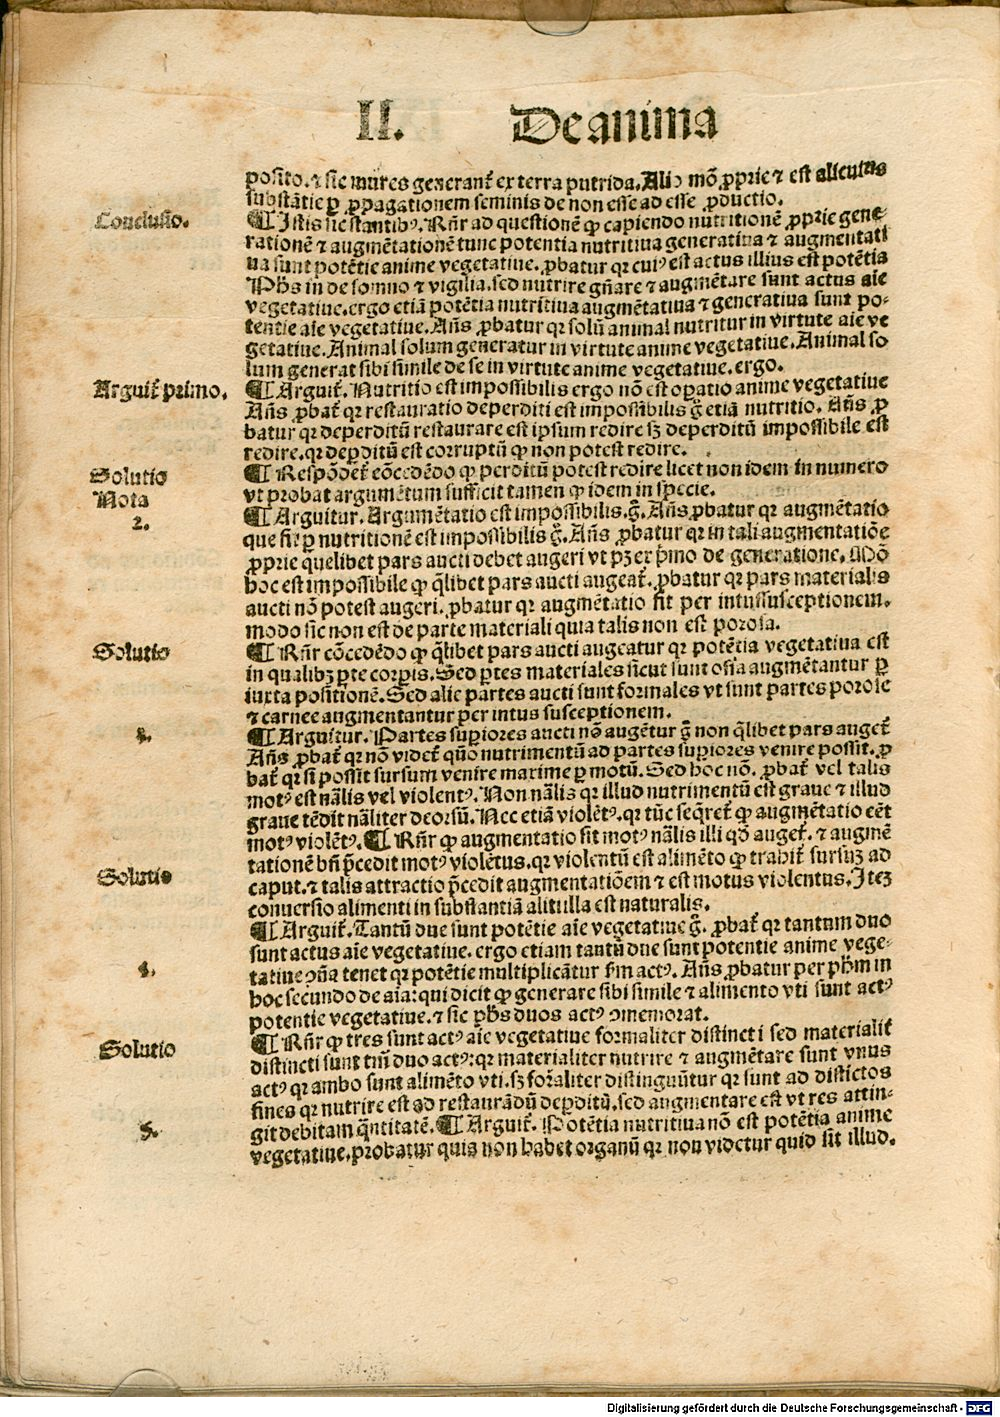 II. De anima
posito. ⁊ sic mures generant̃ ex terra putrida. Alio mõ ꝓprie ⁊ est alicuius
substãtie ꝑ ꝓpagationem seminis de non esse ad esse ꝓductio.
Conclusio.
¶ Istis sic stantibꝰ. Rñr ad questionẽ ꝙ capiendo nutritionẽ ꝓprie gene-
rationẽ ⁊ augmẽtationẽ tunc potentia nutritiua generatiua ⁊ augmentati
ua sunt potẽtie anime vegetatiue. ꝓbatur qꝛ cuiꝰ est actus illius est potẽtia
Pħs in de somno ⁊ vigilia. sed nutrire gñare ⁊ augmẽtare sunt actus aïe
vegetatiue. ergo etiã potẽtia nutritiua augmẽtatiua ⁊ generatiua sunt po-
tentie aïe vegetatiue. Añs ꝓbatur qꝛ solũ animal nutritur in virtute aïe ve
getatiue. Animal solum generatur in virtute anime vegetatiue. Animal so
lum generat sibi simile de se in virtute anime vegetatiue. ergo.
Arguit̃ primo.
¶ Arguit̃. Nutritio est impossibilis ergo nõ est oꝑatio anime vegetatiue
Añs ꝓbat̃ qꝛ restauratio deperditi est impossibilis g̃ etiã nutritio. Añs ꝓ
batur qꝛ deperditũ restaurare est ipsum redire sꝫ deperditũ impossibile est
redire. qꝛ deꝑditũ est corruptũ ꝙ non potest redire.
Solutio
¶ Respõdet̃ cõcedẽdo ꝙ perditũ potest redire licet non idem in numero
Nota
vt probat argumẽtum sufficit tamen ꝙ idem in specie.
2.
¶ Arguitur. Argumẽtatio est impossibilis. g̃. Añs ꝓbatur qꝛ augmẽtatio
que fit ꝑ nutritionẽ est impossibilis g̃. Añs ꝓbatur qꝛ in tali augmentatiõe
ꝓprie quelibet pars aucti debet augeri vt pꝫ ex pͥmo de generatione. Mõ
hoc est impossibile ꝙ q̃libet pars aucti augeat̃. ꝓbatur qꝛ pars materialis
aucti nõ potest augeri. ꝓbatur qꝛ augmẽtatio fit per intussusceptionem.
modo sic non est de parte materiali quia talis non est porosa.
Solutio
¶ Rñr cõcedẽdo ꝙ q̃libet pars aucti augeatur qꝛ potẽtia vegetatiua est
in qualibꝫ ꝑte corꝑis. Sed ꝑtes materiales sicut sunt ossa augmẽtantur ꝑ
iuxta positionẽ. Sed alie partes aucti sunt formales vt sunt partes porose
⁊ carnee augmentantur per intus susceptionem.
3.
¶ Arguitur. Partes suꝑiores aucti nõ augẽtur g̃ non q̃libet pars auget̃.
Añs ꝓbat̃ qꝛ nõ videt̃ quõ nutrimentũ ad partes suꝑiores venire possit. ꝓ
bat̃ qꝛ si possit sursum venire maxime ꝑ motũ. Sed hoc nõ. ꝓbat̃ vel talis
motꝰ est nãlis vel violentꝰ. Non nãlis qꝛ illud nutrimentũ est graue ⁊ illud
graue tẽdit nãliter deorsũ. Nec etiã violẽtꝰ. qꝛ tũc seq̃ret̃ ꝙ augmẽtatio eẽt
motꝰ violẽtꝰ. ¶ Rñr ꝙ augmentatio sit motꝰ nãlis illi qđ auget̃. ⁊ augmẽ
tationẽ bñ p̃cedit motꝰ violẽtus. qꝛ violentũ est alimẽto ꝙ trahit̃ sursuꝫ ad
Solutio
caput. ⁊ talis attractio p̃cedit augmentatiõem ⁊ est motus violentus. Iteꝫ
conuersio alimenti in substantiã aliti illa est naturalis.
¶ Arguit̃. Tantũ due sunt potẽtie aïe vegetatiue g̃. ꝓbat̃ qꝛ tantum duo
sunt actus aïe vegetatiue. ergo etiam tantũ due sunt potentie anime vege-
4.
tatiue ꝯñа tenet qꝛ potẽtie multiplicãtur ẜm actꝰ. Añs ꝓbatur per pħm in
hoc secundo de aïa: qui dicit ꝙ generare sibi simile ⁊ alimento vti sunt actꝰ
potentie vegetatiue. ⁊ sic pħs duos actꝰ ꝯmemorat.
Solutio
¶ Rñr ꝙ tres sunt actꝰ aïe vegetatiue formaliter distincti sed materialit̃
distincti sunt tm̃ duo actꝰ: qꝛ materialiter nutrire ⁊ augmẽtare sunt vnus
actꝰ qꝛ ambo sunt alimẽto vti. sꝫ for̃aliter distinguũtur qꝛ sunt ad distictos
fines qꝛ nutrire est ad restaurãdũ deꝑditũ. sed augmentare est vt res attin-
5.
git debitam q̃ntitatẽ. ¶ Arguit̃. Potẽtia nutritiua nõ est potẽtia anime
vegetatiue. probatur quia non habet organũ qꝛ non videtur quid sit illud.
Digitalisierung gefördert durch die Deutsche Forschungsgemeinschaft - DFG